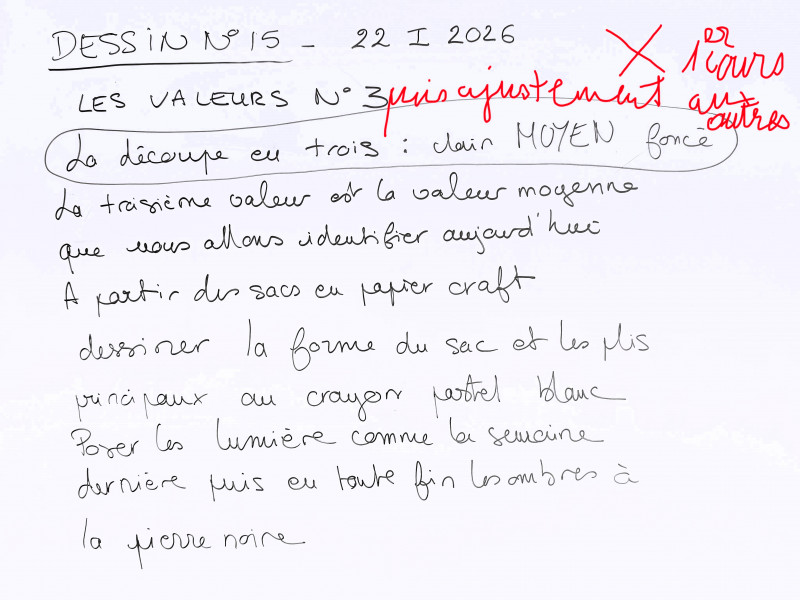 DESSIN N° 15 - 22 I 2026
X 1er cours
LES VALEURS N° 3 puis ajustement aux autres
La découpe en trois : clair MOYEN foncé
La troisième valeur est la valeur moyenne
que nous allons identifier aujourd'hui
A partir des sacs en papier craft
dessiner la forme du sac et les plis
principaux au crayon pastel blanc
Poser les lumière comme la semaine
dernière puis en toute fin les ombres à
la pierre noire